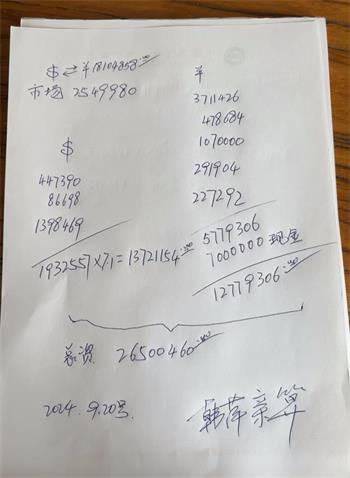 $ ⇄ ¥18104858.00
市场 2549980
$
447390
86698
1398469
1932557×7.1=13721154.00
¥
3711426
478684
1070000
291904
227292
5779306
7000000 现金
12779306.00
总资 26500460.00
2024.9.20号.
韩萍亲算